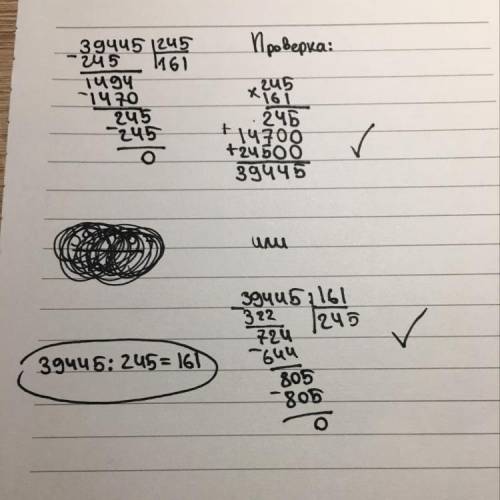 39445 | 245
- 245 | 161
1494
- 1470
245
- 245
0
Проверка:
× 245
161
245
+ 14700
+ 24500
39445
✓
или
39445 : 161
- 322 | 245
724
- 644
805
- 805
0
✓
39445 : 245 = 161